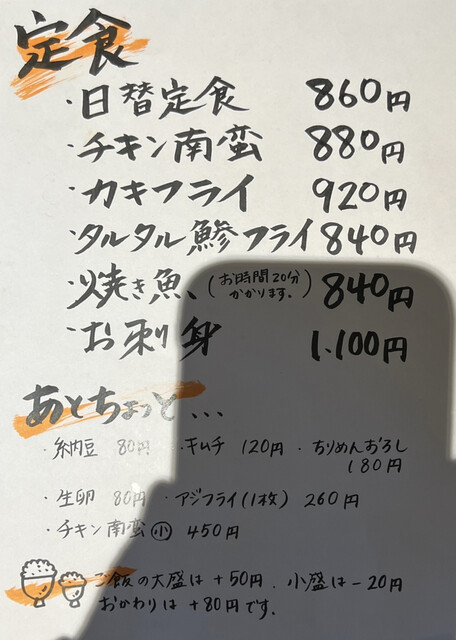 定食
・日替定食 860円
・チキン南蛮 880円
・カキフライ 920円
・タルタル鯵フライ 840円
・焼き魚、(お時間20分かかります。) 840円
・お刺身 1,100円
あとちょっと...
・納豆 80円 ・キムチ 120円 ・ちりめんおろし
180円
・生卵 80円 ・アジフライ(1枚) 260円
・チキン南蛮㊙小 450円
ご飯の大盛は+50円.小盛は-20円
おかわりは+80円です。